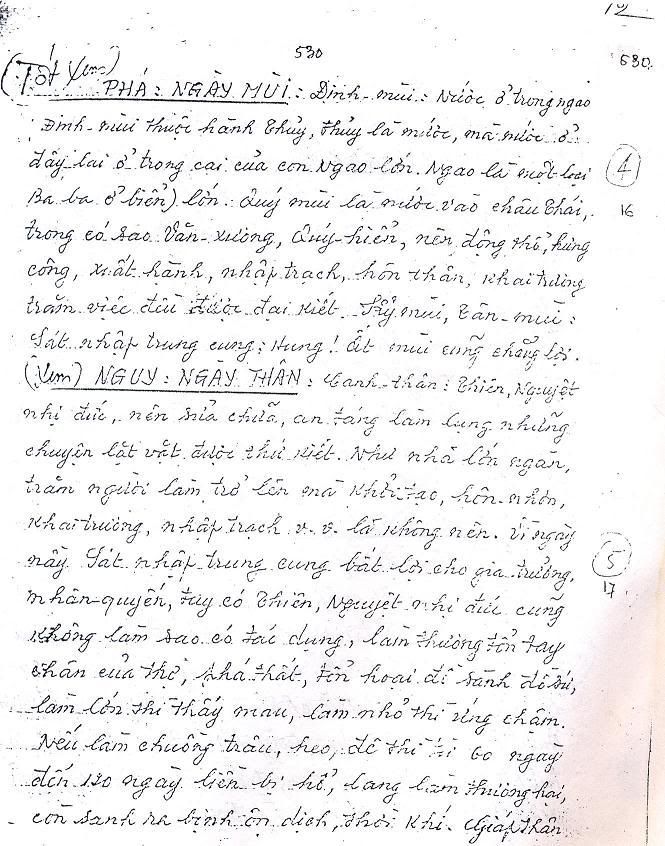 12
530
530.
(Tốt Xem)
PHÁ: NGÀY MÙI: Đinh-mùi: Nước ở trong ngao
Đinh-mùi thuộc hành Thủy, thủy là nước, mà nước ở
đây lại ở trong cái của con Ngao lớn. Ngao là một loại
4
Ba ba ở biển) lớn. Quý mùi là nước vào châu Thái,
16
trong có sao Văn-xương, Quý-hiển, nên động thổ, hưng
công, xuất hành, nhập trạch, hôn thân, khai trương
trăm việc đều được đại kiết. Kỷ mùi, Tân-mùi:
Sát nhập trung cung: Hung! Ất mùi cũng chẳng lợi.
(Xem) NGUY: NGÀY THÂN: Canh-thân: Thiên, Nguyệt
nhị đức, nên sửa chữa, an táng làm lụng những
chuyện lặt vặt được thứ kiết. Như nhà lớn ngàn,
trăm người làm trở lên mà khởi tạo, hôn-nhơn,
khai trương, nhập trạch v.v. là không nên. Vì ngày
5
nầy Sát nhập trung cung bất lợi cho gia trưởng,
17
nhân-quyến, tuy có Thiên, Nguyệt nhị đức cũng
không làm sao có tác dụng, làm thương tổn tay
chân của thợ, phá thất, tổn hoại đề sành đồ sứ,
làm lớn thì thấy mau, làm nhỏ thì ứng chậm.
Nếu làm chuồng trâu, heo, dê thì 60 ngày
đến 120 ngày liền bị hổ, lang làm thương hại,
còn sanh ra bịnh ôn dịch, thời khí. Giáp thân